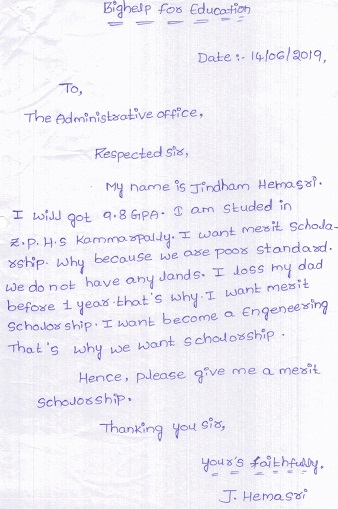 Bighelp for Education
Date :- 14/06/2019,
To,
The Administrative office,
Respected sir,
My name is Jindham Hemasri.
I will got 9.8 GPA. I am studed in
Z.P.H.S Kammarpally. I want merit schola-
rship. Why because we are poor standard.
we do not have any lands. I loss my dad
before 1 year. that's why I want merit
scholor ship. I want become a Engeneering
That's why we want scholorship.
Hence, please give me a merit
scholorship.
Thanking you sir,
your's faithfully.
J. Hemasri